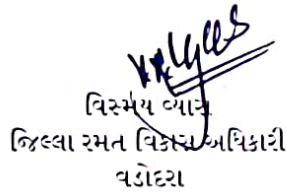 વિસ્મય વ્યાસ
જિલ્લા રમત વિકાસ અધિકારી
વડોદરા